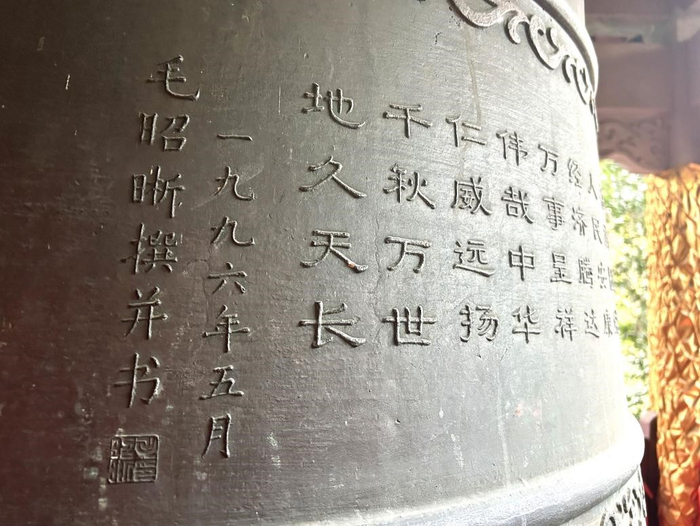 人民安康
经济腾达
万事呈祥
伟哉中华
仁威远扬
千秋万世
地久天长
一九九六年五月
毛昭晰撰并书